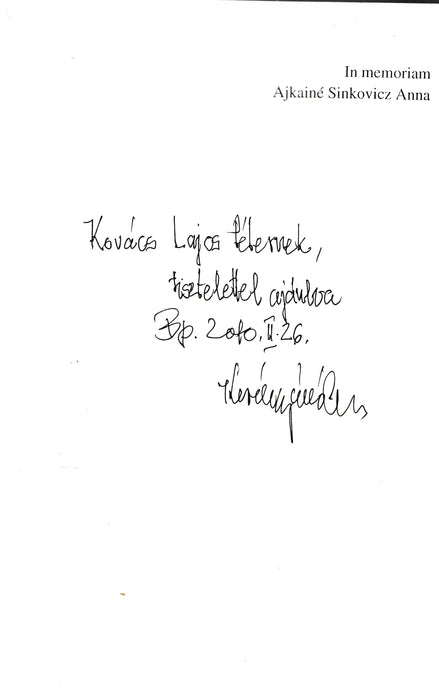 In memoriam
Ajkainé Sinkovicz Anna
Kovács Lajos Péternek,
tisztelettel ajdulva
Bp. 2010. II. 26.